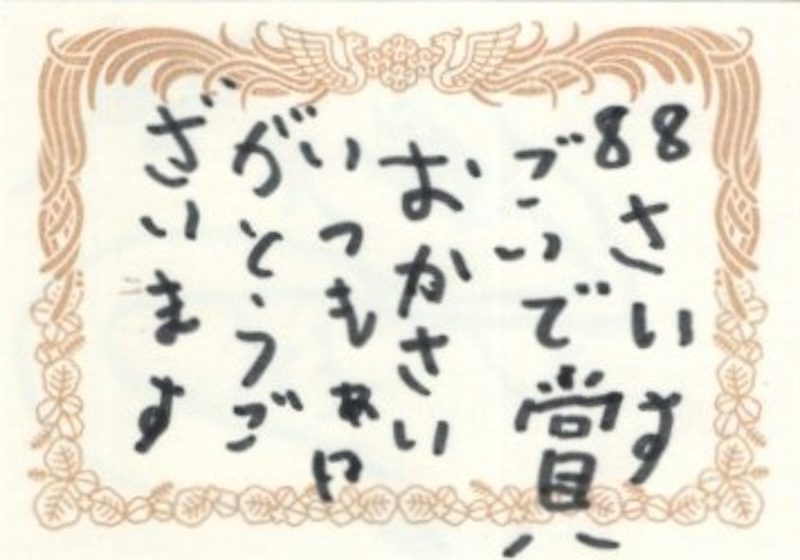 88さいす
ごいで賞
おかさい
いつもあり
がとうご
ざいます